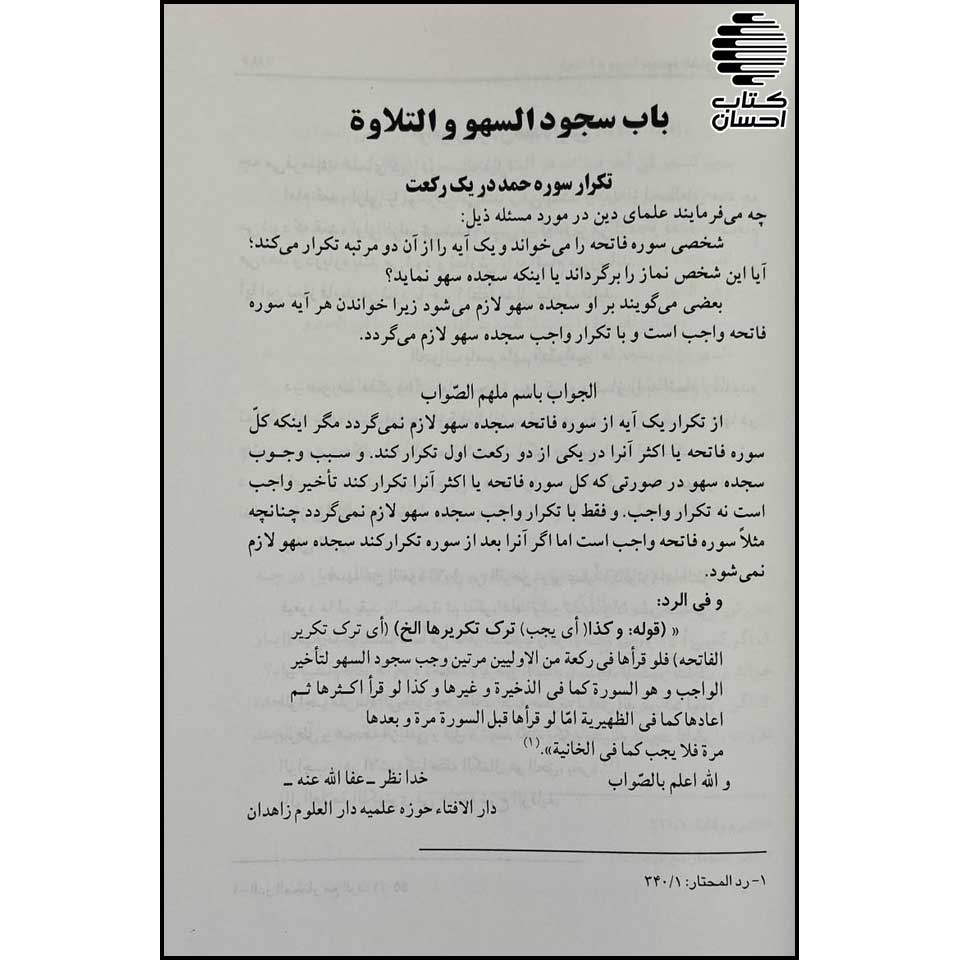 کتاب
احسان
باب سجود السهو و التلاوة
تکرار سوره حمد در یک رکعت
چه می‌فرمایند علمای دین در مورد مسئله ذیل:
شخصی سوره فاتحه را می‌خواند و یک آیه را از آن دو مرتبه تکرار می‌کند؛
آیا این شخص نماز را برگرداند یا اینکه سجده سهو نماید؟
بعضی می‌گویند بر او سجده سهو لازم می‌شود زیرا خواندن هر آیه سوره
فاتحه واجب است و با تکرار واجب سجده سهو لازم می‌گردد.
الجواب باسم ملهم الصّواب
از تکرار یک آیه از سوره فاتحه سجده سهو لازم نمی‌گردد مگر اینکه کلّ
سوره فاتحه یا اکثر آنرا در یکی از دو رکعت اول تکرار کند. و سبب وجوب
سجده سهو در صورتی که کل سوره فاتحه یا اکثر آنرا تکرار کند تأخیر واجب
است نه تکرار واجب. و فقط با تکرار واجب سجده سهو لازم نمی‌گردد چنانچه
مثلاً سوره فاتحه واجب است اما اگر آنرا بعد از سوره تکرار کند سجده سهو لازم
نمی‌شود.
و فی الرد:
« (قوله: و کذا( أی یجب) ترک تکریرها الخ) (أی ترک تکریر
الفاتحه) فلو قرأها فی رکعة من الاولیین مرتین وجب سجود السهو لتأخیر
الواجب و هو السورة کما فی الذخیرة و غیرها و کذا لو قرأ اکثرها ثم
اعادها کما فی الظهیریة امّا لو قرأها قبل السورة مرة و بعدها
مرة فلا یجب کما فی الخانیة».(۱)
و الله اعلم بالصّواب خدا نظر ـ عفا الله عنه ـ
دار الافتاء حوزه علمیه دار العلوم زاهدان
۱- رد المحتار: ۳۴۰/۱